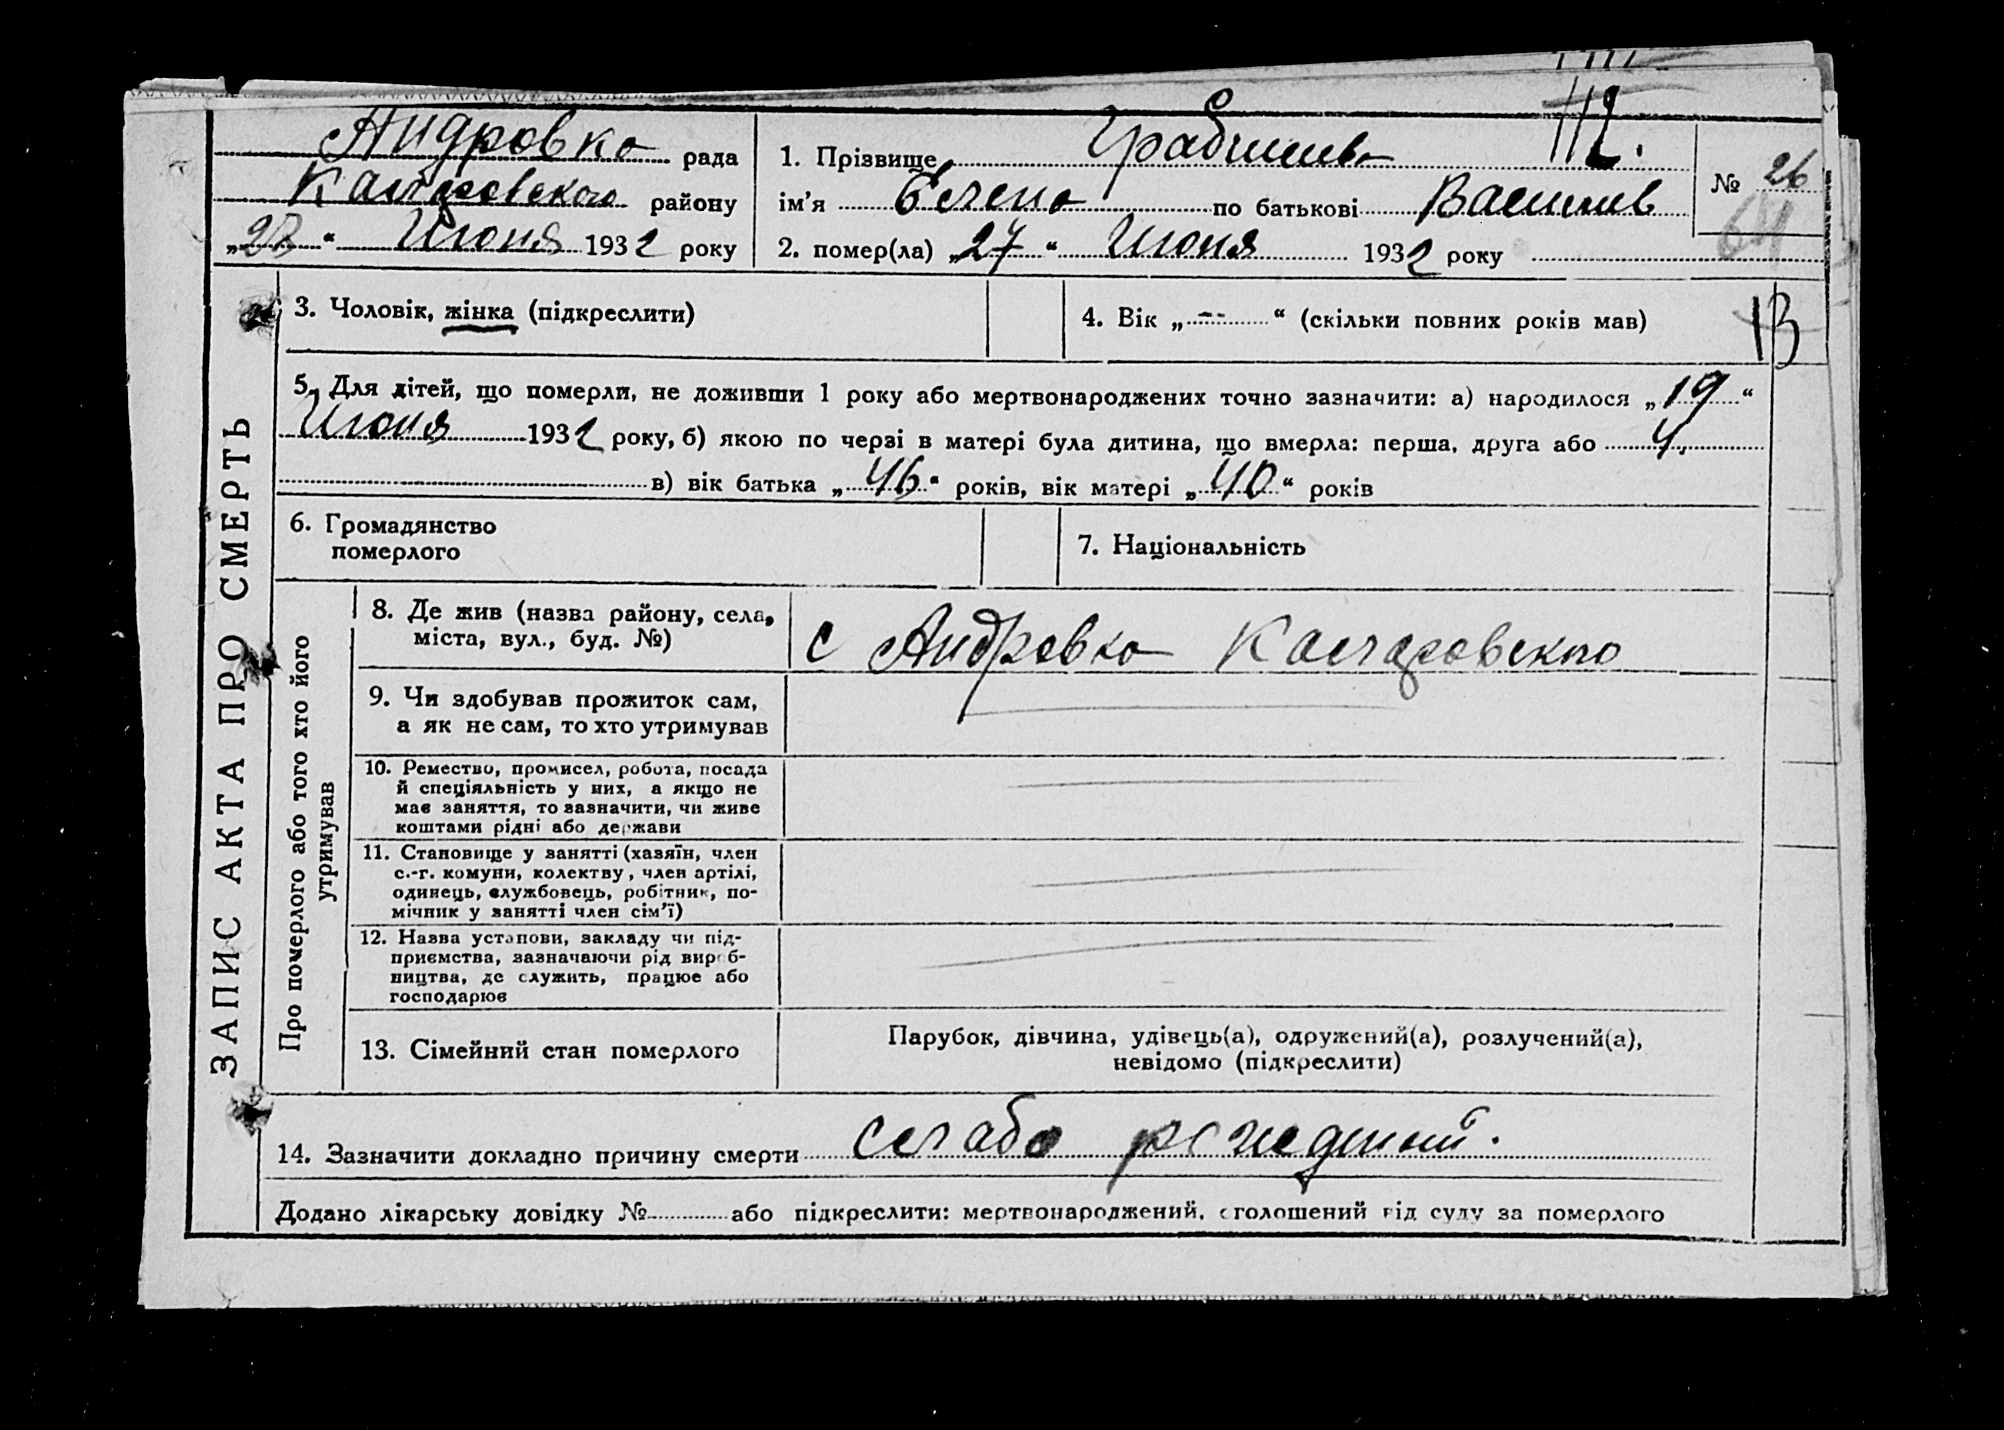 Андровка рада
района
„28“ Июня 1932 року
1. Прізвище
ім’я Елена по батькові Василив
2. помер(ла) „27“ Июня 1932 року
№ 26
64
112.
3. Чоловік, жінка (підкреслити)
4. Вік „--“ (скільки повних років мав)
13
5. Для дітей, що померли, не доживши 1 року або мертвонароджених точно зазначити: а) народилося „19“
Июня 1932 року, б) якою по черзі в матері була дитина, що вмерла: перша, друга або 4.
в) вік батька „46“ років, вік матері „40“ років
6. Громадянство
померлого
7. Національність
ЗАПИС АКТА ПРО СМЕРТЬ
Про померлого або того хто його
утримував
8. Де жив (назва району, села,
міста, вул., буд. №)
с Андровка
9. Чи здобував прожиток сам,
а як не сам, то хто утримував
10. Ремество, промисел, робота, посада
й спеціяльність у них, а якщо не
має заняття, то зазначити, чи живе
коштами рідні або держави
11. Становище у занятті (хазяїн, член
с.-г. комуни, колективу, член артілі,
одинець, службовець, робітник, по-
мічник у занятті член сім’ї)
12. Назва установи, закладу чи під-
приємства, зазначаючи рід вироб-
ництва, де служить, працює або
господарює
13. Сімейний стан померлого
Парубок, дівчина, удівець(а), одружений(а), розлучений(а),
невідомо (підкреслити)
14. Зазначити докладно причину смерти слабо рожденый.
Додано лікарську довідку № або підкреслити: мертвонароджений, оголошений від суду за померлого